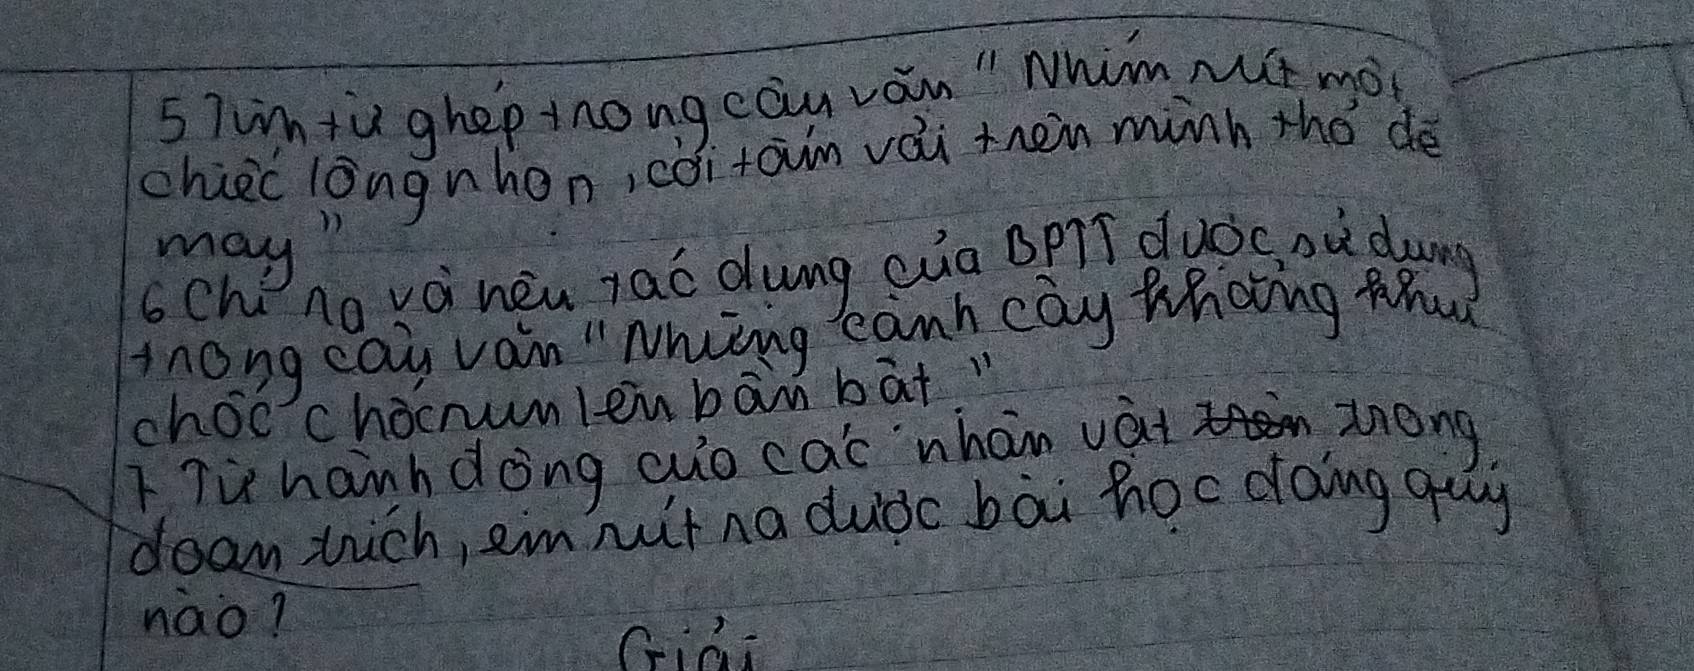 5 Tìm từ ghép trong câu văn "Nhím rút một
chiếc lông nhọn, cởi tấm vải trên mình thỏ để
may"
6 Chỉ ra và nêu tác dụng của BPTT được sử dụng
trong câu văn "Những cành cây khẳng khiu
chốc chốc run lên bần bật"
7 Từ hành động của các nhân vật trong
đoạn trích, em rút ra được bài học đáng quý
nào?
Giải